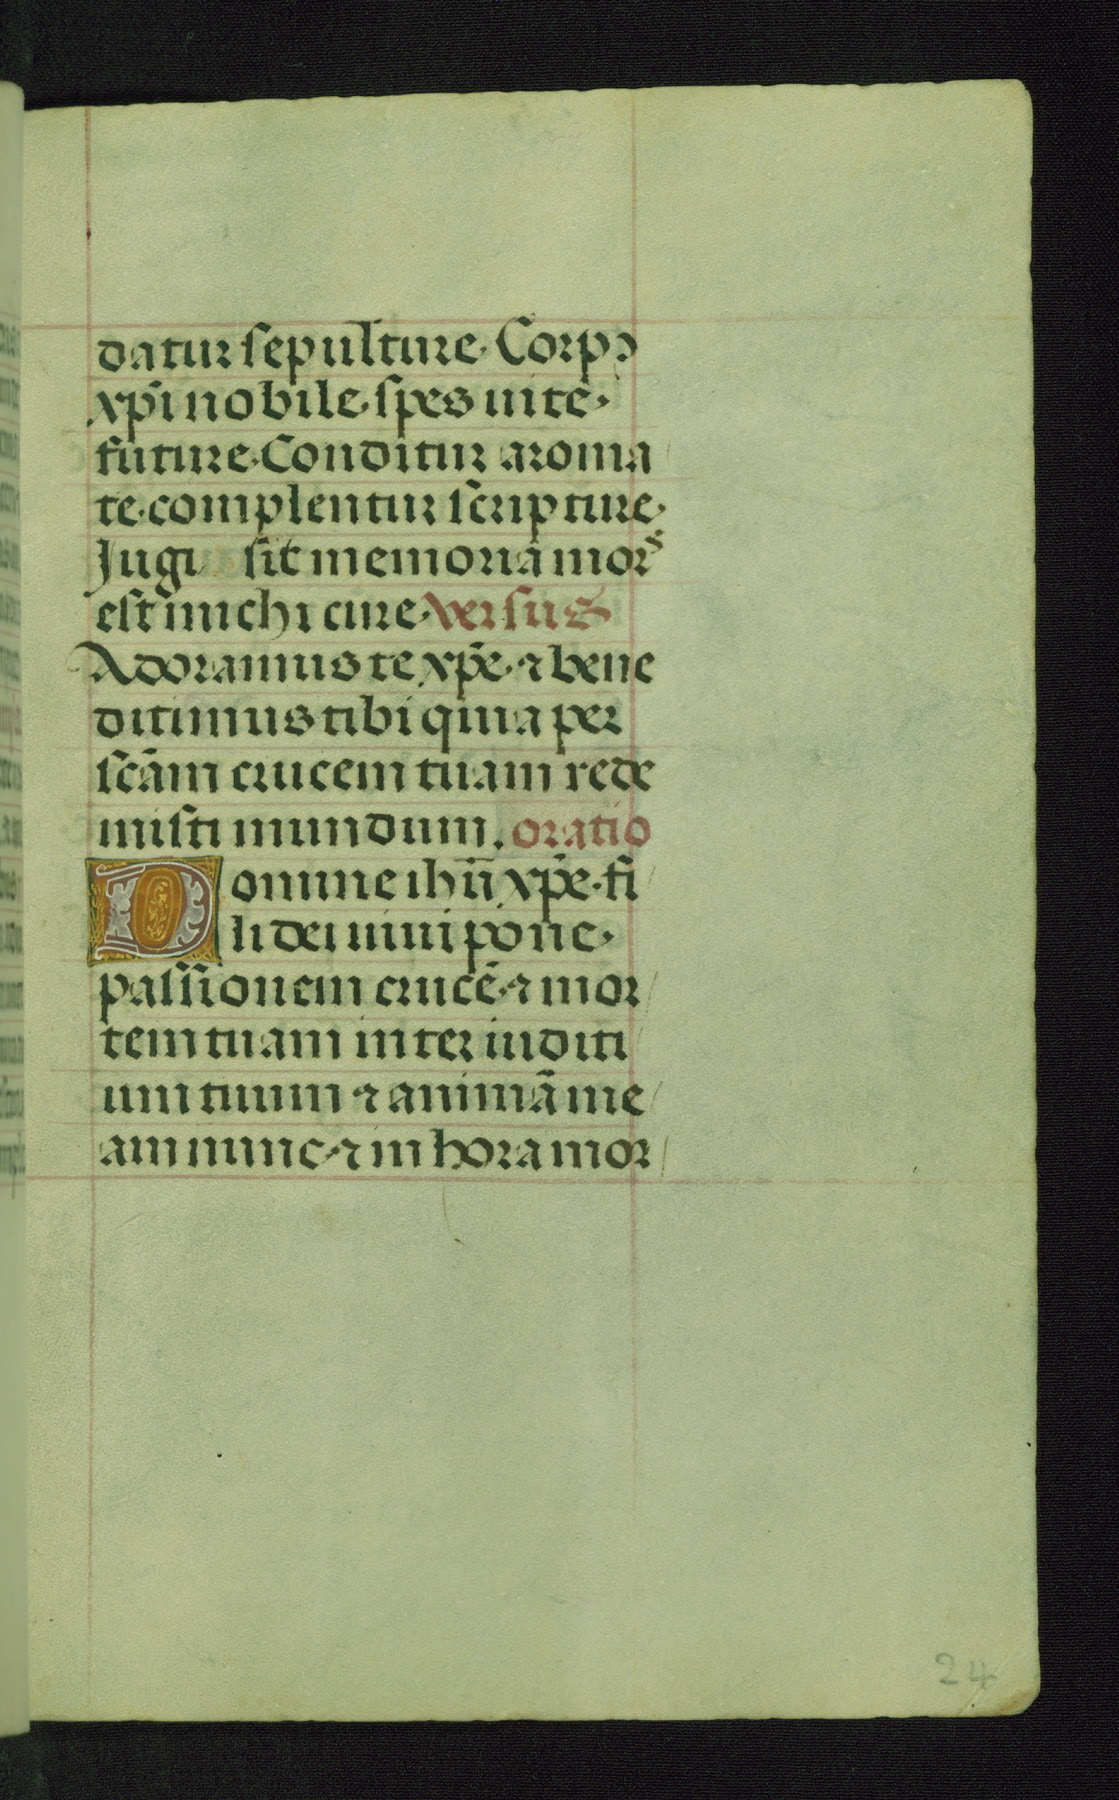 datur sepulture. Corpꝰ
xp̄i nobile. spes uite.
future. Conditur aroma
te. complentur scripture.
Jugi sit memoria morˢ
est michi cure. versus
Adoramus te xp̄e. ⁊ bene
ditimus tibi quia per
scām crucem tuam rede
misti mundum. oratio
Domine ihū xp̄e. fi
li dei uiui pone.
passionem crucē. ⁊ mor
tem tuam inter iuditi
um tuum ⁊ animā me
am nunc. ⁊ in hora mor
24